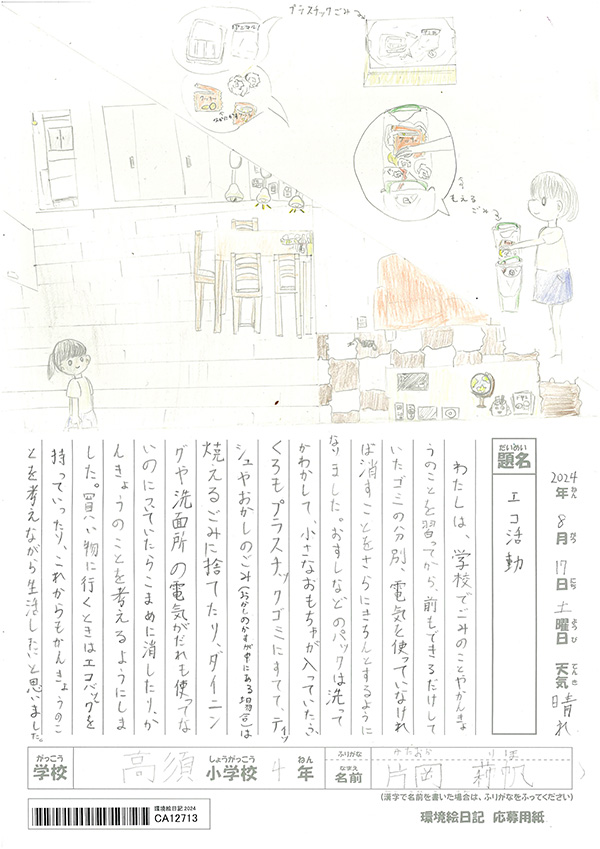 プラスチックごみ
もえる
ごみ
2024年ねん 8月がつ 17日にち 土曜日ようび 天気てんき 晴れ
題名だいめい
エコ活動
わたしは、学校でごみのことやかんきょ
うのことを習ってから、前もできるだけして
いたゴミの分別、電気を使っていなけれ
ば消すことをさらにきちんとするように
なりました。おすしなどのパックは洗って
かわかして、小さなおもちゃが入っていたふ
くろもプラスチックゴミにすてて、ティッ
シュやおかしのごみ(おかしのかすが中にある場合)は
焼えるごみに捨てたり、ダイニン
グや洗面所の電気がだれも使ってな
いのについていたらこまめに消したり、か
んきょうのことを考えるようにしま
した。買い物に行くときはエコバックを
持っていったり、これからもかんきょうのこ
とを考えながら生活したいと思いました。
学校がっこう 高須 小学校しょうがっこう 4 年ねん
ふりがな かたおか りほ
名前なまえ 片岡 莉帆
(漢字で名前を書いた場合は、ふりがなをふってください)
環境絵日記2024
CA12713
環境絵日記 応募用紙